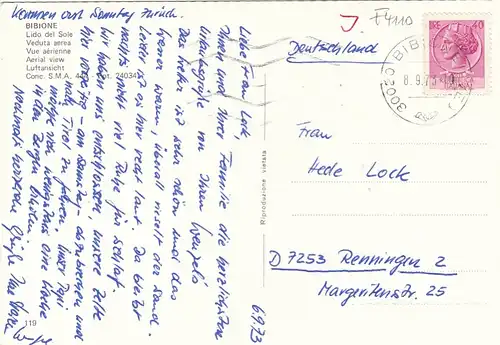 Kommen erst Sonntag zurück.
BIBIONE
Lido del Sole
Veduta aerea
Vue aérienne
Aerial view
Luftansicht
Conc. S.M.A. 24034
119
Liebe Frau Lock,
Ihnen und Ihrer Familie die herzlichsten
Urlaubsgrüße von Ihren
Das Wetter ist sehr schön und das
Wasser warm, überall rieselt der Sand.
Leider ist es hier recht laut. Da bleibt
nachts nicht viel Ruhe für Schlaf.
wir haben uns entschlossen, unsere Zelte
hier vorzeitig - am Samstag - abzubrechen und
nach Tirol zu fahren. Unser Papi
möchte sich wenigstens eine Woche
in den Bergen erholen.
Nochmals herzliche
Grüße Ihre
6.9.73
Riproduzione vietata
J. F4110
Deutschland
LIRE 40
30020 BIBIONE
8.9.73
Frau
Hede Lock
D 7253 Renningen 2
Margeritenstr. 25